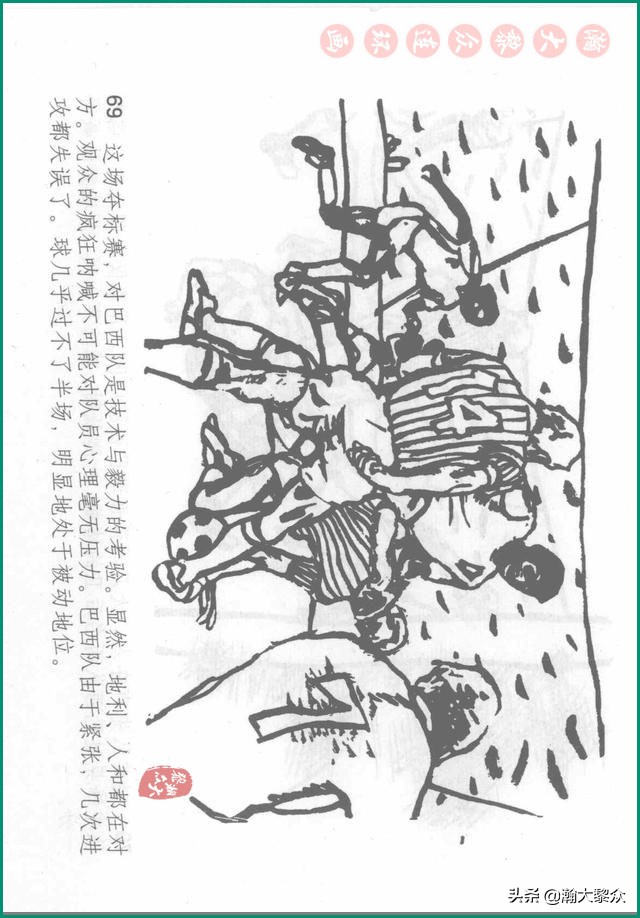 瀚大黎众连环画
4
69 这场夺标赛，对巴西队是技术与毅力的考验。显然，地利、人和都在对
方。观众的疯狂呐喊不可能对队员心理毫无压力。巴西队由于紧张，几次进
攻都失误了。球几乎过不了半场，明显地处于被动地位。
头条 @瀚大黎众